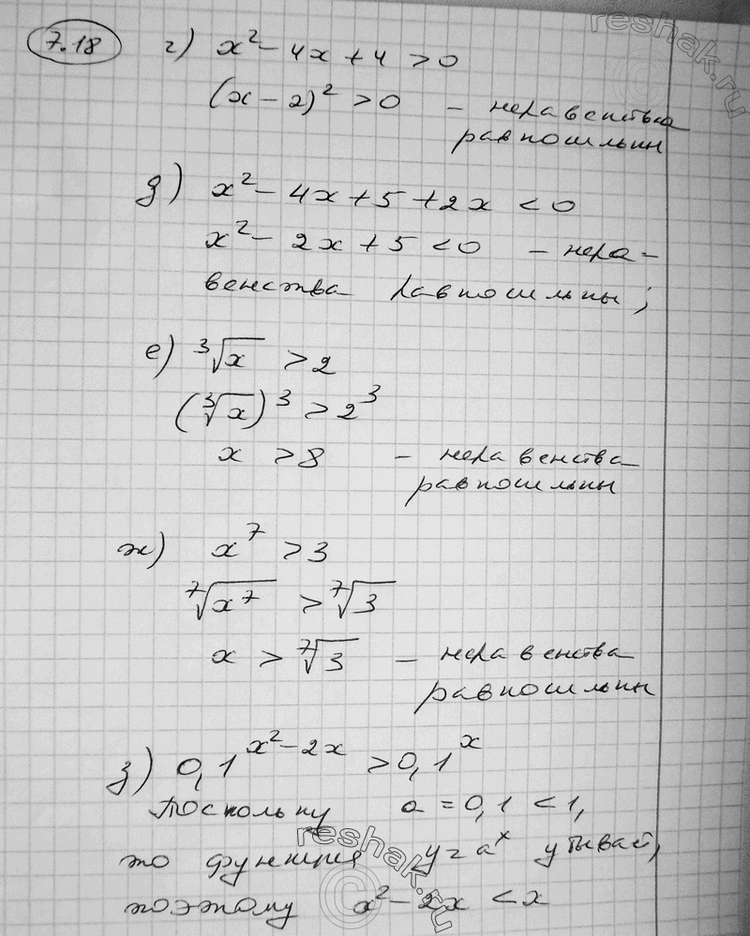 reshak.ru
7.18 г) x² - 4x + 4 > 0
(x - 2)² > 0 - неравенства
равносильны
д) x² - 4x + 5 + 2x < 0
x² - 2x + 5 < 0 - нера-
венства равносильны;
е) ∛x > 2
(∛x)³ > 2³
x > 8 - неравенства
равносильны
ж) x⁷ > 3
⁷√x⁷ > ⁷√3
x > ⁷√3 - неравенства
равносильны
з) 0,1^(x² - 2x) > 0,1^x
Поскольку a = 0,1 < 1,
reshak.ru
то функция y = aˣ убывает,
©
поэтому x² - 2x < x